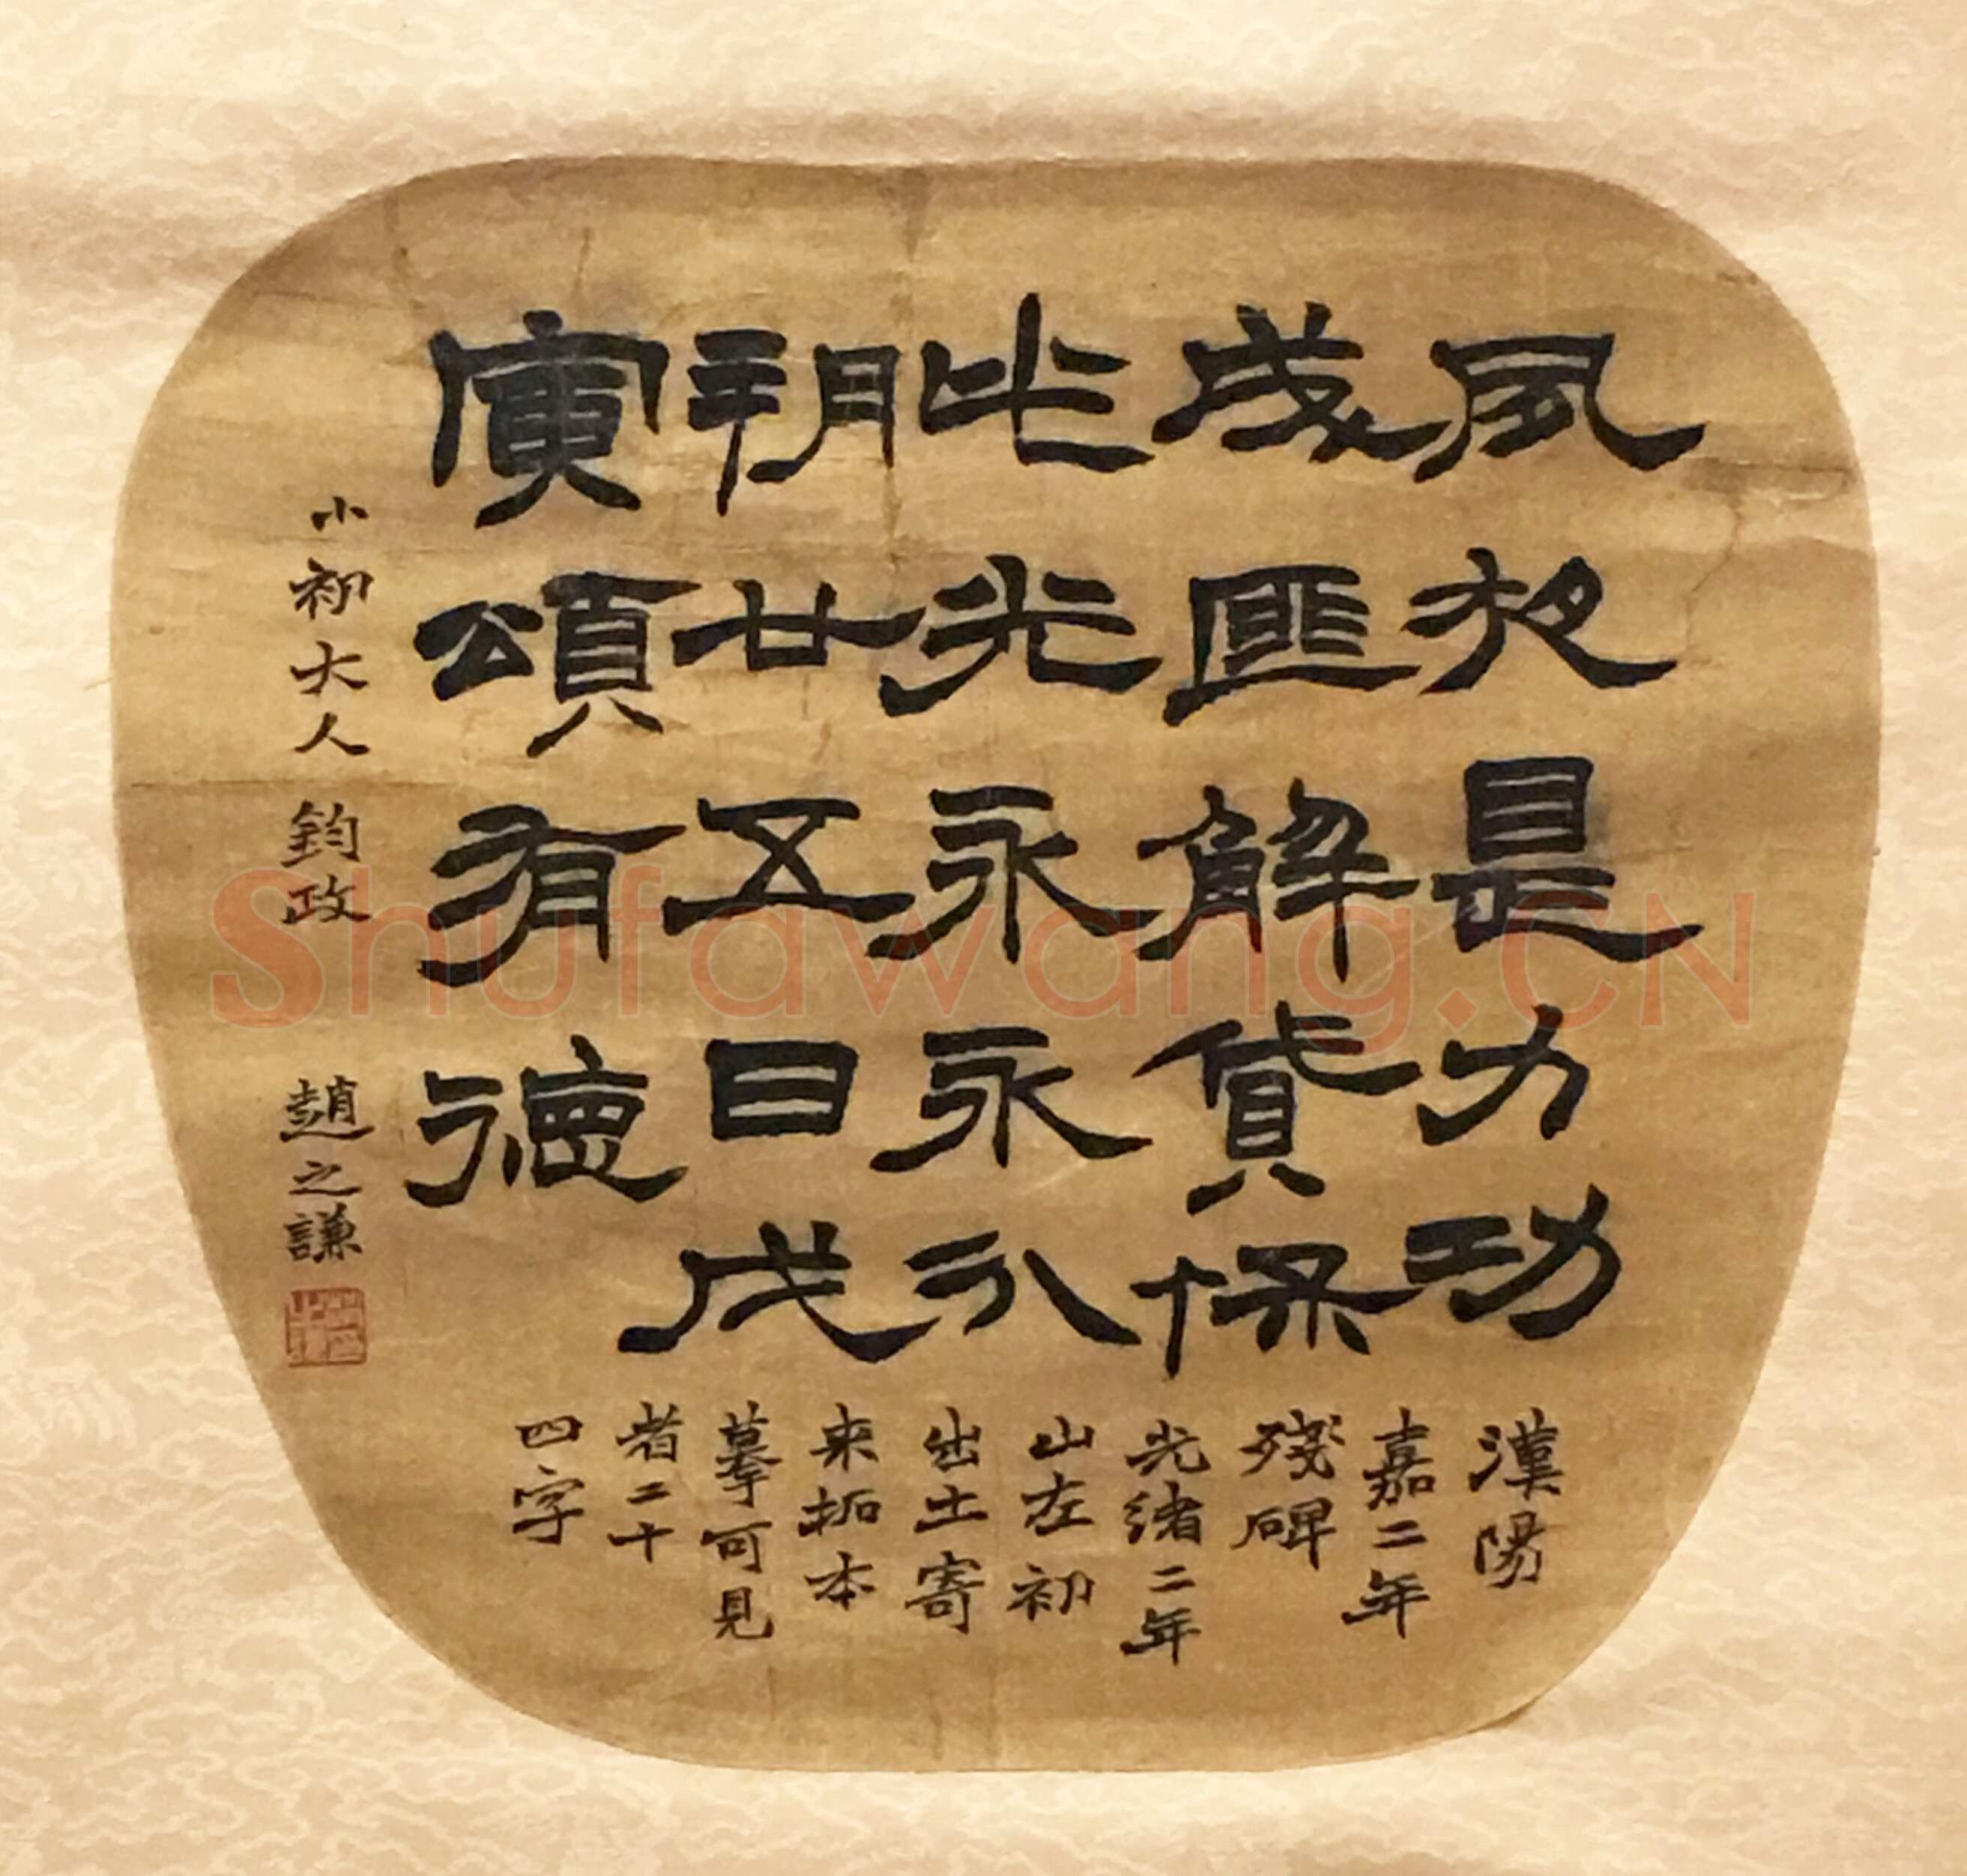 夙夜是力功
茂匪解貸保
此光永永不
朔廿五日戊
寅頌有德
漢陽
嘉二年
殘碑
光緒二年
山左初
出土寄
来拓本
摹可見
者二十
四字
小初大人鈞政 趙之謙
Shufawang.CN